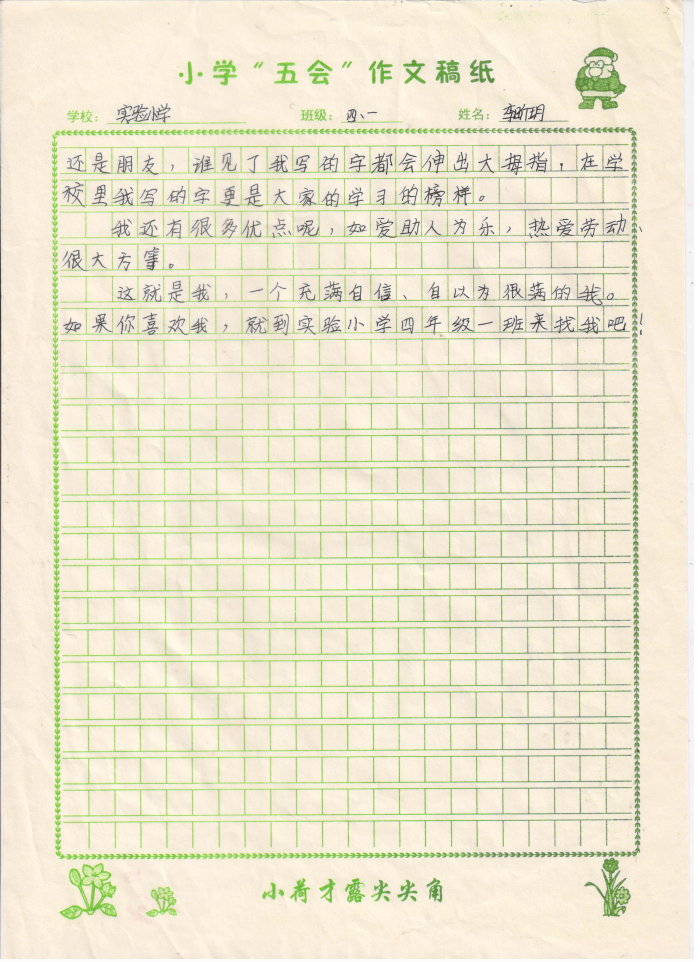 小学“五会”作文稿纸
学校：实验小学 班级：四、一 姓名：李昕玥
还是朋友，谁见了我写的字都会伸出大拇指，在学
校里我写的字更是大家的学习的榜样。
我还有很多优点呢，如爱助人为乐，热爱劳动、
很大方等。
这就是我，一个充满自信、自以为狠满的我。
如果你喜欢我，就到实验小学四年级一班来找我吧！
小荷才露尖尖角